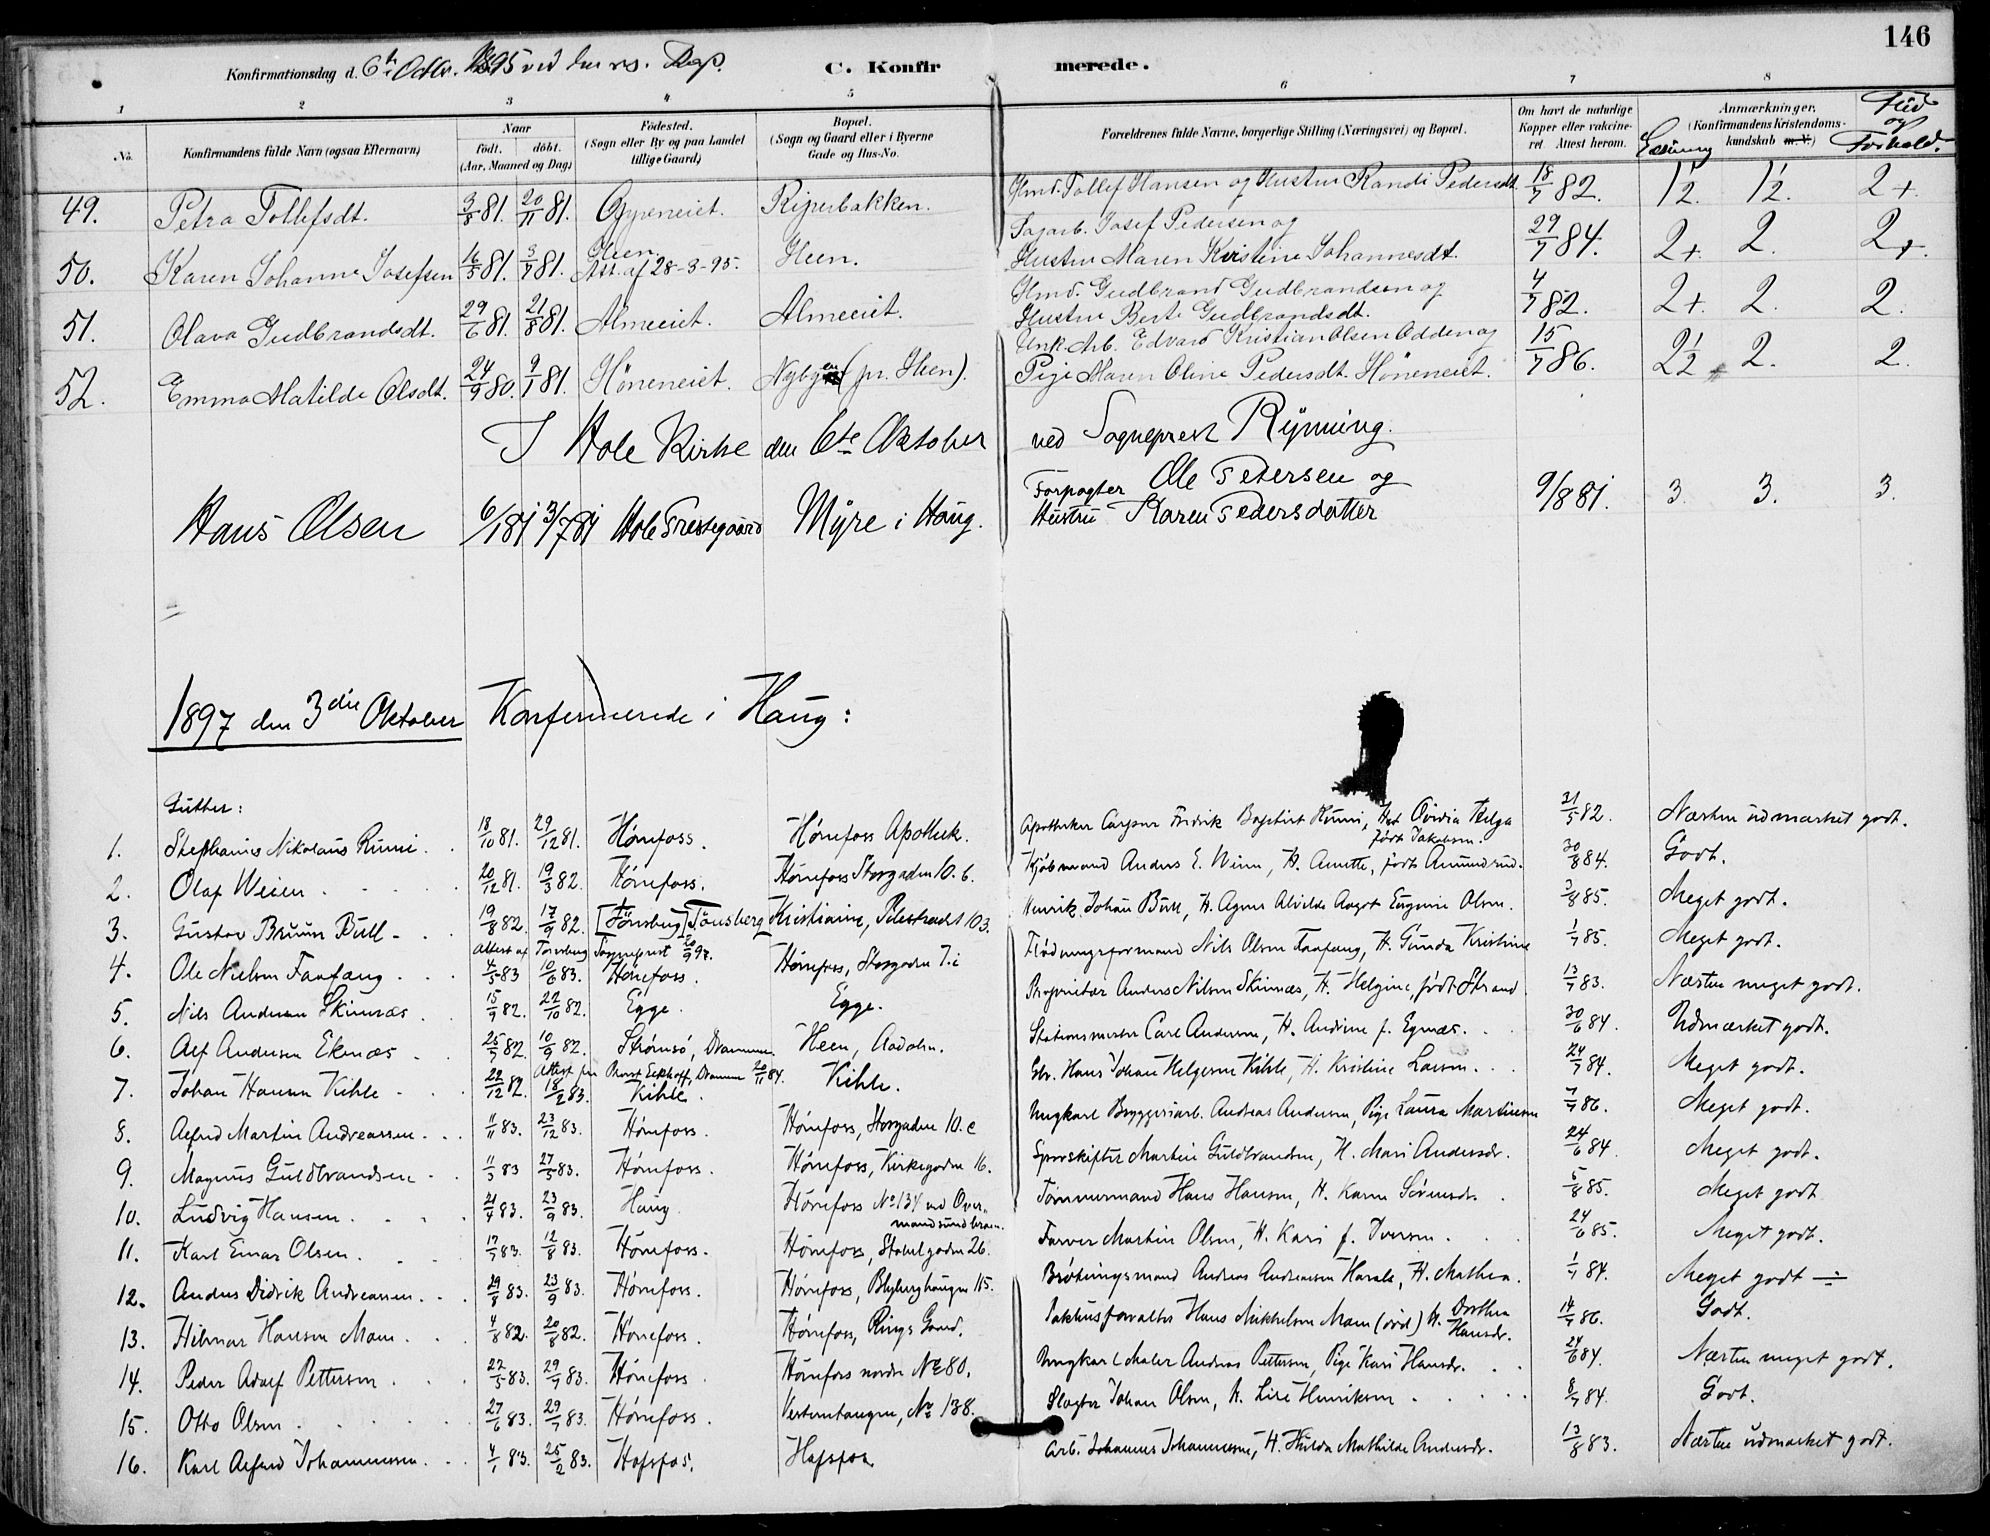 146
Konfirmationsdag d. 6te Octbr. 1895 ved den res. Kap. C. Konfirmerede.
1 2 3 4 5 6 7 8
No. Konfirmandens fulde Navn (ogsaa Efternavn) Naar født. døbt. (Aar, Maaned og Dag) Fødested. (Sogn eller By og paa Landet tillige Gaard) Bopæl. (Sogn og Gaard eller i Byerne Gade og Hus-No. Forældrenes fulde Navne, borgerlige Stilling (Næringsvei) og Bopæl. Om havt de naturlige Kopper eller vakcineret. Attest herom. Anmærkninger. (Konfirmandens Kristendomskundskab m. V.) Flid og Forhold.
49. Petra Tollefsdt. 3/8 81. 20/11 81. Gjyeneiet. Riperbakken. Hmd. Tollef Hansen og Hustru Randi Pedersdt. 18/7 82. 1½ 1½. 2+.
50. Karen Johanne Josefsen 16/5 81. 3/7 81. Heen. Att. af 28-3-95. Heen. Sagarb. Josef Pedersen og
Hustru Maren Kristine Johannesdt. 29/7 84. 2+. 2. 2+.
51. Olava Gudbrandsdt. 29/6 81. 21/8 81. Almeeiet. Almeeiet. Hmd. Gudbrand Gudbrandsen og
Hustru Berte Gudbrandsdt. 4/7 82. 2+. 2. 2.
52. Emma Matilde Olsdt. 24/9 80. 9/1 81. Høneneiet. Nybyen (pr. Heen). Unk. Arb. Edvard Kristian Olsen Odden og
Pige Maren Oline Pedersdt. Høneneiet. 15/7 86. 2½ 2. 2.
I Hole Kirke den 6te Oktober ved Sogneprest Rynning.
Hans Olsen 6/1 81 3/7 81 Hole Prestegaard Myre i Haug. Forpagter Ole Petersen og
Hustru Karen Pedersdatter 9/8 81. 3. 3. 3.
1897 den 3die Oktober Konfirmerede i Haug:
Gutter:
1. Stephanus Nikolaus Rumi. 18/10 81. 29/12 81. Hønefoss. Hønefoss Apothek. Apotheker Caspar Fredrik Baptist Rumi, Hst Ovidia Helga
født Jakobsen. 21/5 82. Næsten udmærket godt.
2. Olaf Weien 20/12 81. 19/3 82. Hønefoss. Hønefoss Storgaden 10. b. Kjøbmand Anders E. Weien, H. Anette, født Amundrud. 30/8 84. Godt.
3. Gustav Bruun Bull 19/8 82. 17/9 82. [Tønsberg] Tønsberg Kristiania, Pilestrædet 103. Henrik Johan Bull, H. Agnes Alvilde Aagot Eugenie Olsen. 3/8 85. Meget godt.
Attest af Tønsberg Sogneprest 20/9 97.
4. Ole Nielsen Faafæng 4/5 83 10/6 83. Hønefoss. Hønefoss, Storgaden 7. i Flødningsformand Nils Olsen Faafæng, H. Gunda Kristine 1/7 85. Meget godt.
5. Nils Andersen Skinnæs 15/9 82. 22/10 82. Egge. Egge. Proprietær Anders Nilsen Skinnæs, H. Helgine, født Strand 13/7 83. Næsten meget godt.
6. Alf Andersen Ekenæs 25/7 82. 10/9 82. Strømsø, Drammen. Heen, Aadalen. Stationsmester Carl Andersen, H. Andrine f. Egenæs. 30/6 84. Udmærket godt.
Attest fra Provst Eckhoff, Drammen 20/11 84.
7. Johan Hansen Kihle 22/12 82. 18/2 83. Kihle. Kihle. Gbr. Hans Johan Helgesen Kihle, H. Kristine Larsen. 24/7 84. Meget godt.
8. Alfred Martin Andreassen 11/11 83. 23/12 83. Hønefoss. Hønefoss, Storgaden 10. c Ungkarl Bryggeriarb. Andreas Andersen, Pige Laura Martinsen 7/7 86. Meget godt.
9. Magnus Guldbrandsen 11/3 83 27/5 83. Hønefoss. Hønefoss, Kirkegaden 16. Sporskifter Martin Guldbrandsen, H. Mari Andersdr. 24/6 84. Meget godt.
10. Ludvig Hansen. 21/4 83. 23/9 83. Haug Hønefoss No 134 ved Overmandsundbroen. Tømmermand Hans Hansen, H. Karen Sørensdr. 5/8 85. Meget godt
11. Karl Einar Olsen. 17/7 83. 12/8 83. Hønefoss. Hønefoss, Stabelgaden 26. Farver Martin Olsen, H. Kari f. Iversen. 24/6 85. Meget godt.
12. Anders Didrik Andreassen. 29/8 83. 23/9 83. Hønefoss. Hønefoss, Blyberghaugen 115. Brøtningsmand Andreas Andreassen, H. Mathea. 1/7 84. Meget godt ÷
13. Hilmar Hansen Moen 4/8 82. 20/8 82. Hønefoss. Hønefoss, Rings Gaard. Pakhusforvalter Hans Mikkelsen Moen (død) H. Dorthea
Hansdr. 14/7 86. Godt.
14. Peder Adolf Pettersen 22/5 83. 29/7 83. Hønefoss Hønefoss nordre No 80. Ungkarl Maler Andreas Pettersen, Pige Kari Hansdr. 24/6 84. Næsten meget godt.
15. Otto Olsen 27/6 83. 29/7 83. Hønefoss. Vesterntangen, No 138. Slagter Johan Olsen, H. Lise Henriksen 8/7 84. Godt.
16. Karl Alfred Johannessen 4/1 83. 25/2 83. Hofsfos. Hofsfos Arb. Johannes Johannessen, H. Hilda Mathilde Andersdr. 13/8 83. Næsten udmærket godt.